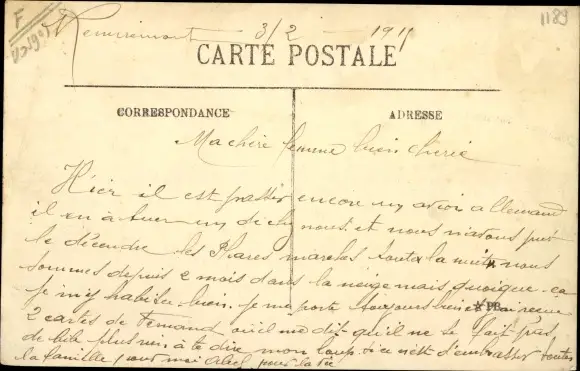 F
1189
Remiremont 3/2 1915
CARTE POSTALE
CORRESPONDANCE
ADRESSE
Ma chere femme bien cherie
Hier il est passer encore un avion allemand
il en à tuer un de chez nous. et nous navons pus
le décendre les Phares marches toute la nuit, nous
sommes depuis 2 mois dans la neige mais quoique ça
je my habitue bien, je me porte toujours bien et jai recue
PB
2 cartes de Fernand où il me dit qu'il ne se fait pas
de bile plus rien à te dire mon loup. si ce n'est d'embrasser toutes
la famille pour moi pour la vie